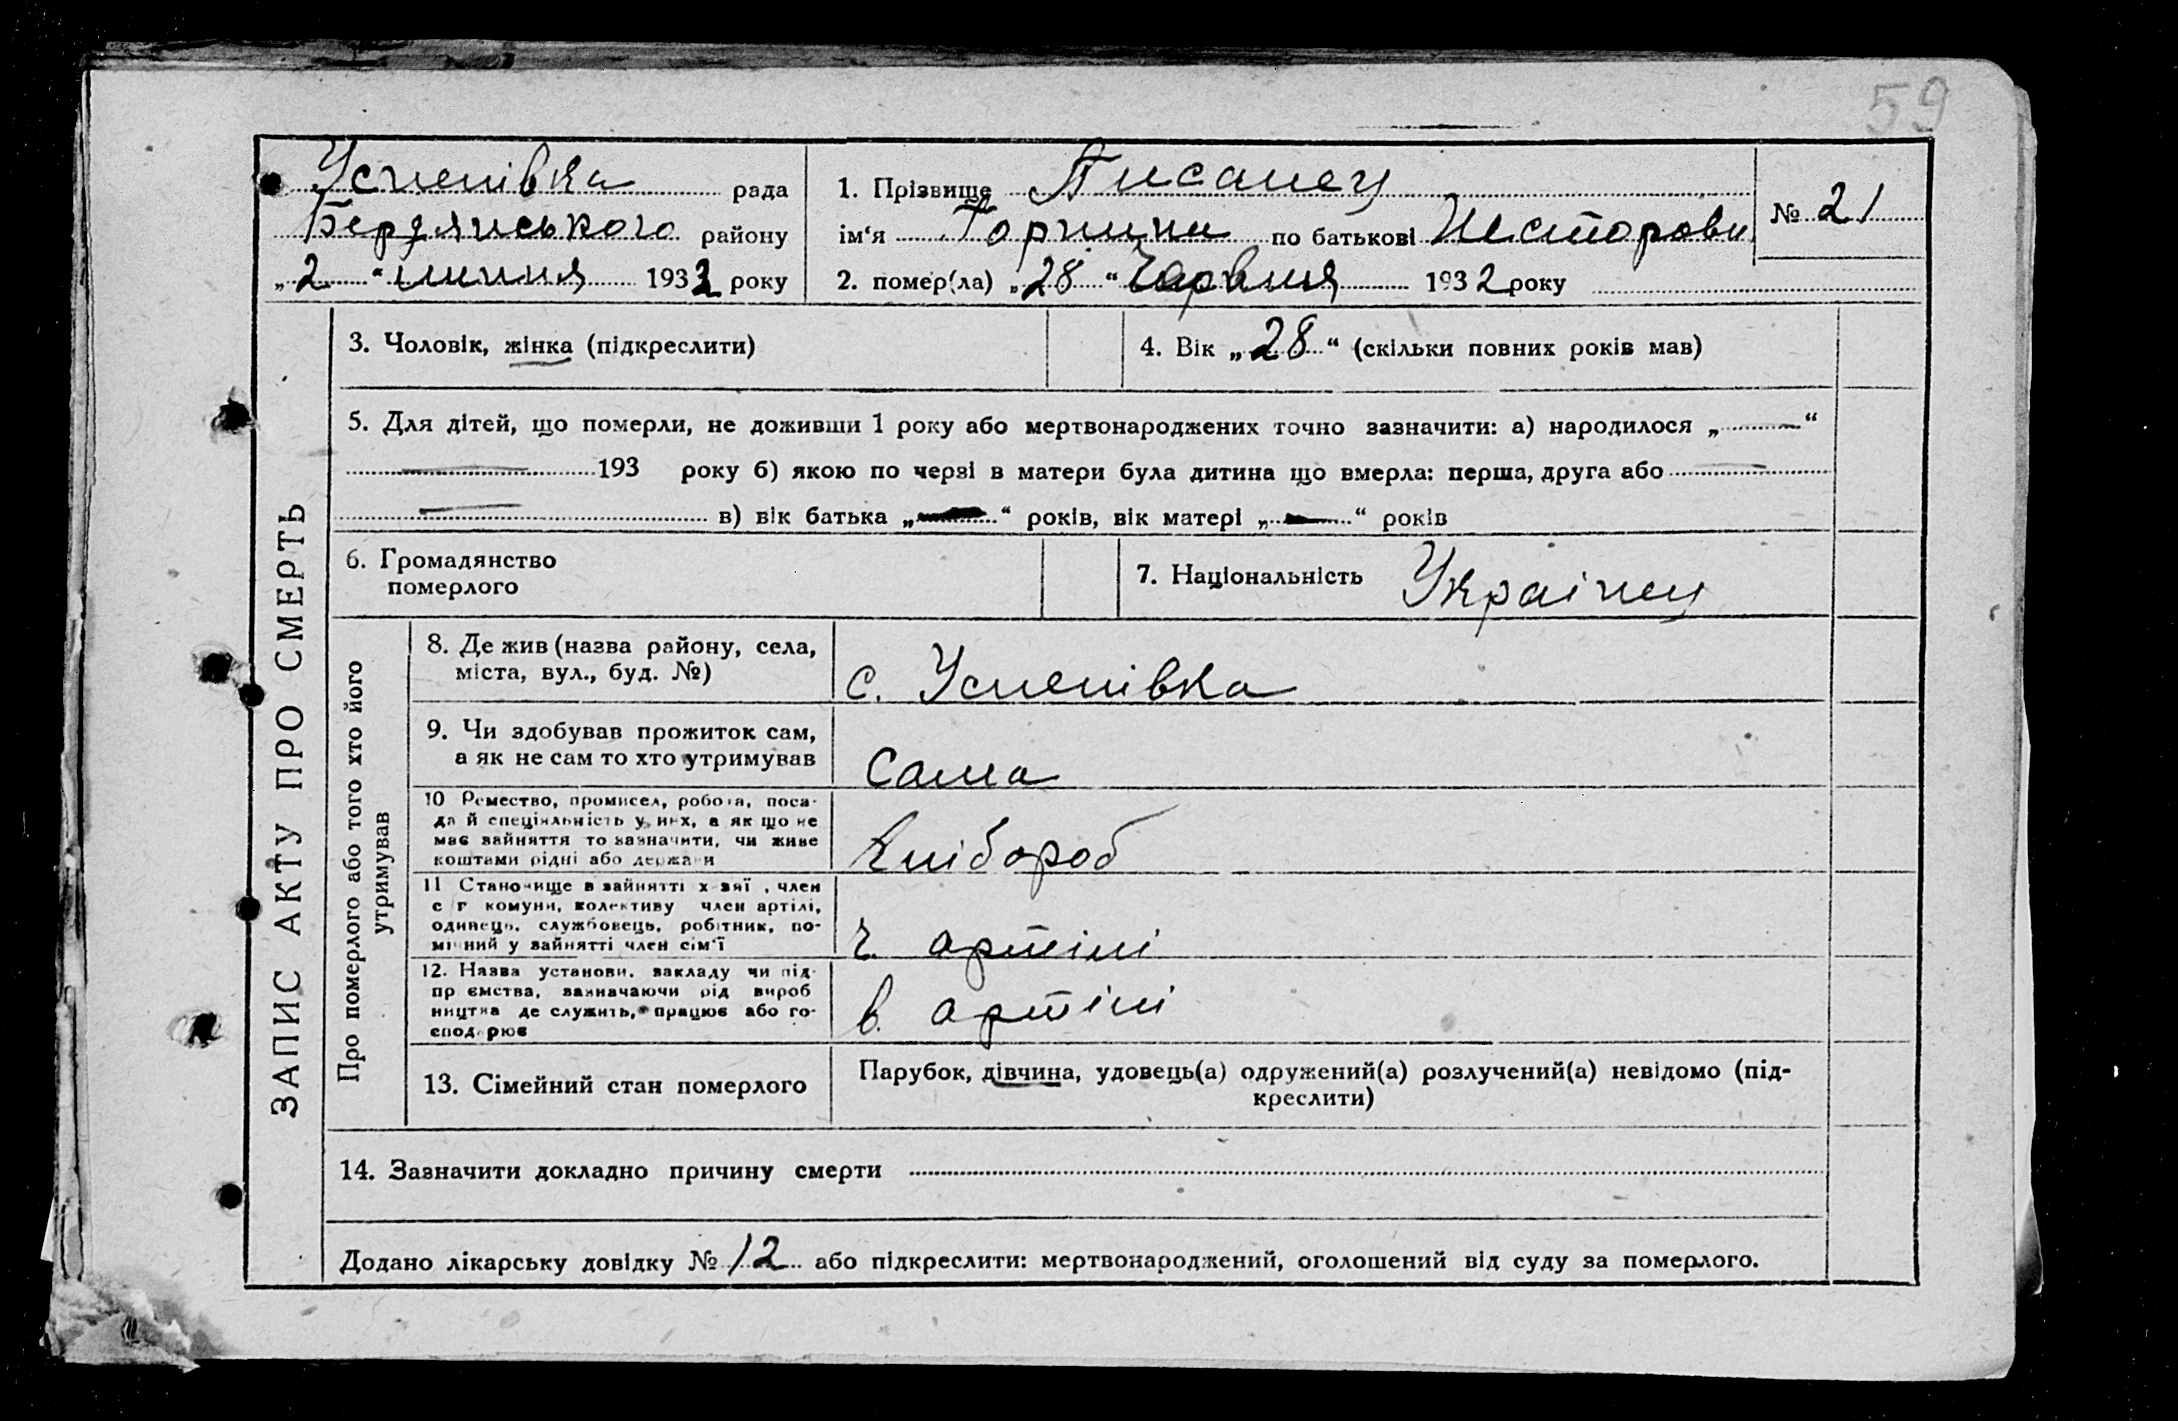 59
Успенівка рада
Бердянського району
„2“ липня 1932 року
1. Прізвище Писанец
ім‘я Горпина по батькові Несторовн
2. помер(ла) „28“ Червня 1932 року
№ 21
ЗАПИС АКТУ ПРО СМЕРТЬ
3. Чоловік, жінка (підкреслити)
4. Вік „28“ (скільки повних років мав)
5. Для дітей, що померли, не доживши 1 року або мертвонароджених точно зазначити: а) народилося „—“
— 193 року б) якою по черзі в матери була дитина що вмерла: перша, друга або —
— в) вік батька „—“ років, вік матері „—“ років
6. Громадянство
померлого
7. Національність Українец
Про померлого або того хто його
утримував
8. Де жив (назва району, села,
міста, вул., буд. №)
с. Успенівка
9. Чи здобував прожиток сам,
а як не сам то хто утримував
Сама
10 Ремество, промисел, робота, поса-
да й спеціяльність у них, а як що не
має зайняття то зазначити, чи живе
коштами рідні або держави
Хлібороб
11 Становище в зайнятті хазяї, член
с г комуни, колективу член артілі,
одинець, службовець, робітник, по-
мічний у зайнятті член сім‘ї
ч. артілі
12. Назва установи, закладу чи під-
пр ємства, зазначаючи рід вироб
ництва де служить, працює або го-
сподарює
в. артілі
13. Сімейний стан померлого
Парубок, дівчина, удовець(а) одружений(а) розлучений(а) невідомо (під-
креслити)
14. Зазначити докладно причину смерти
Додано лікарську довідку № 12 або підкреслити: мертвонароджений, оголошений від суду за померлого.